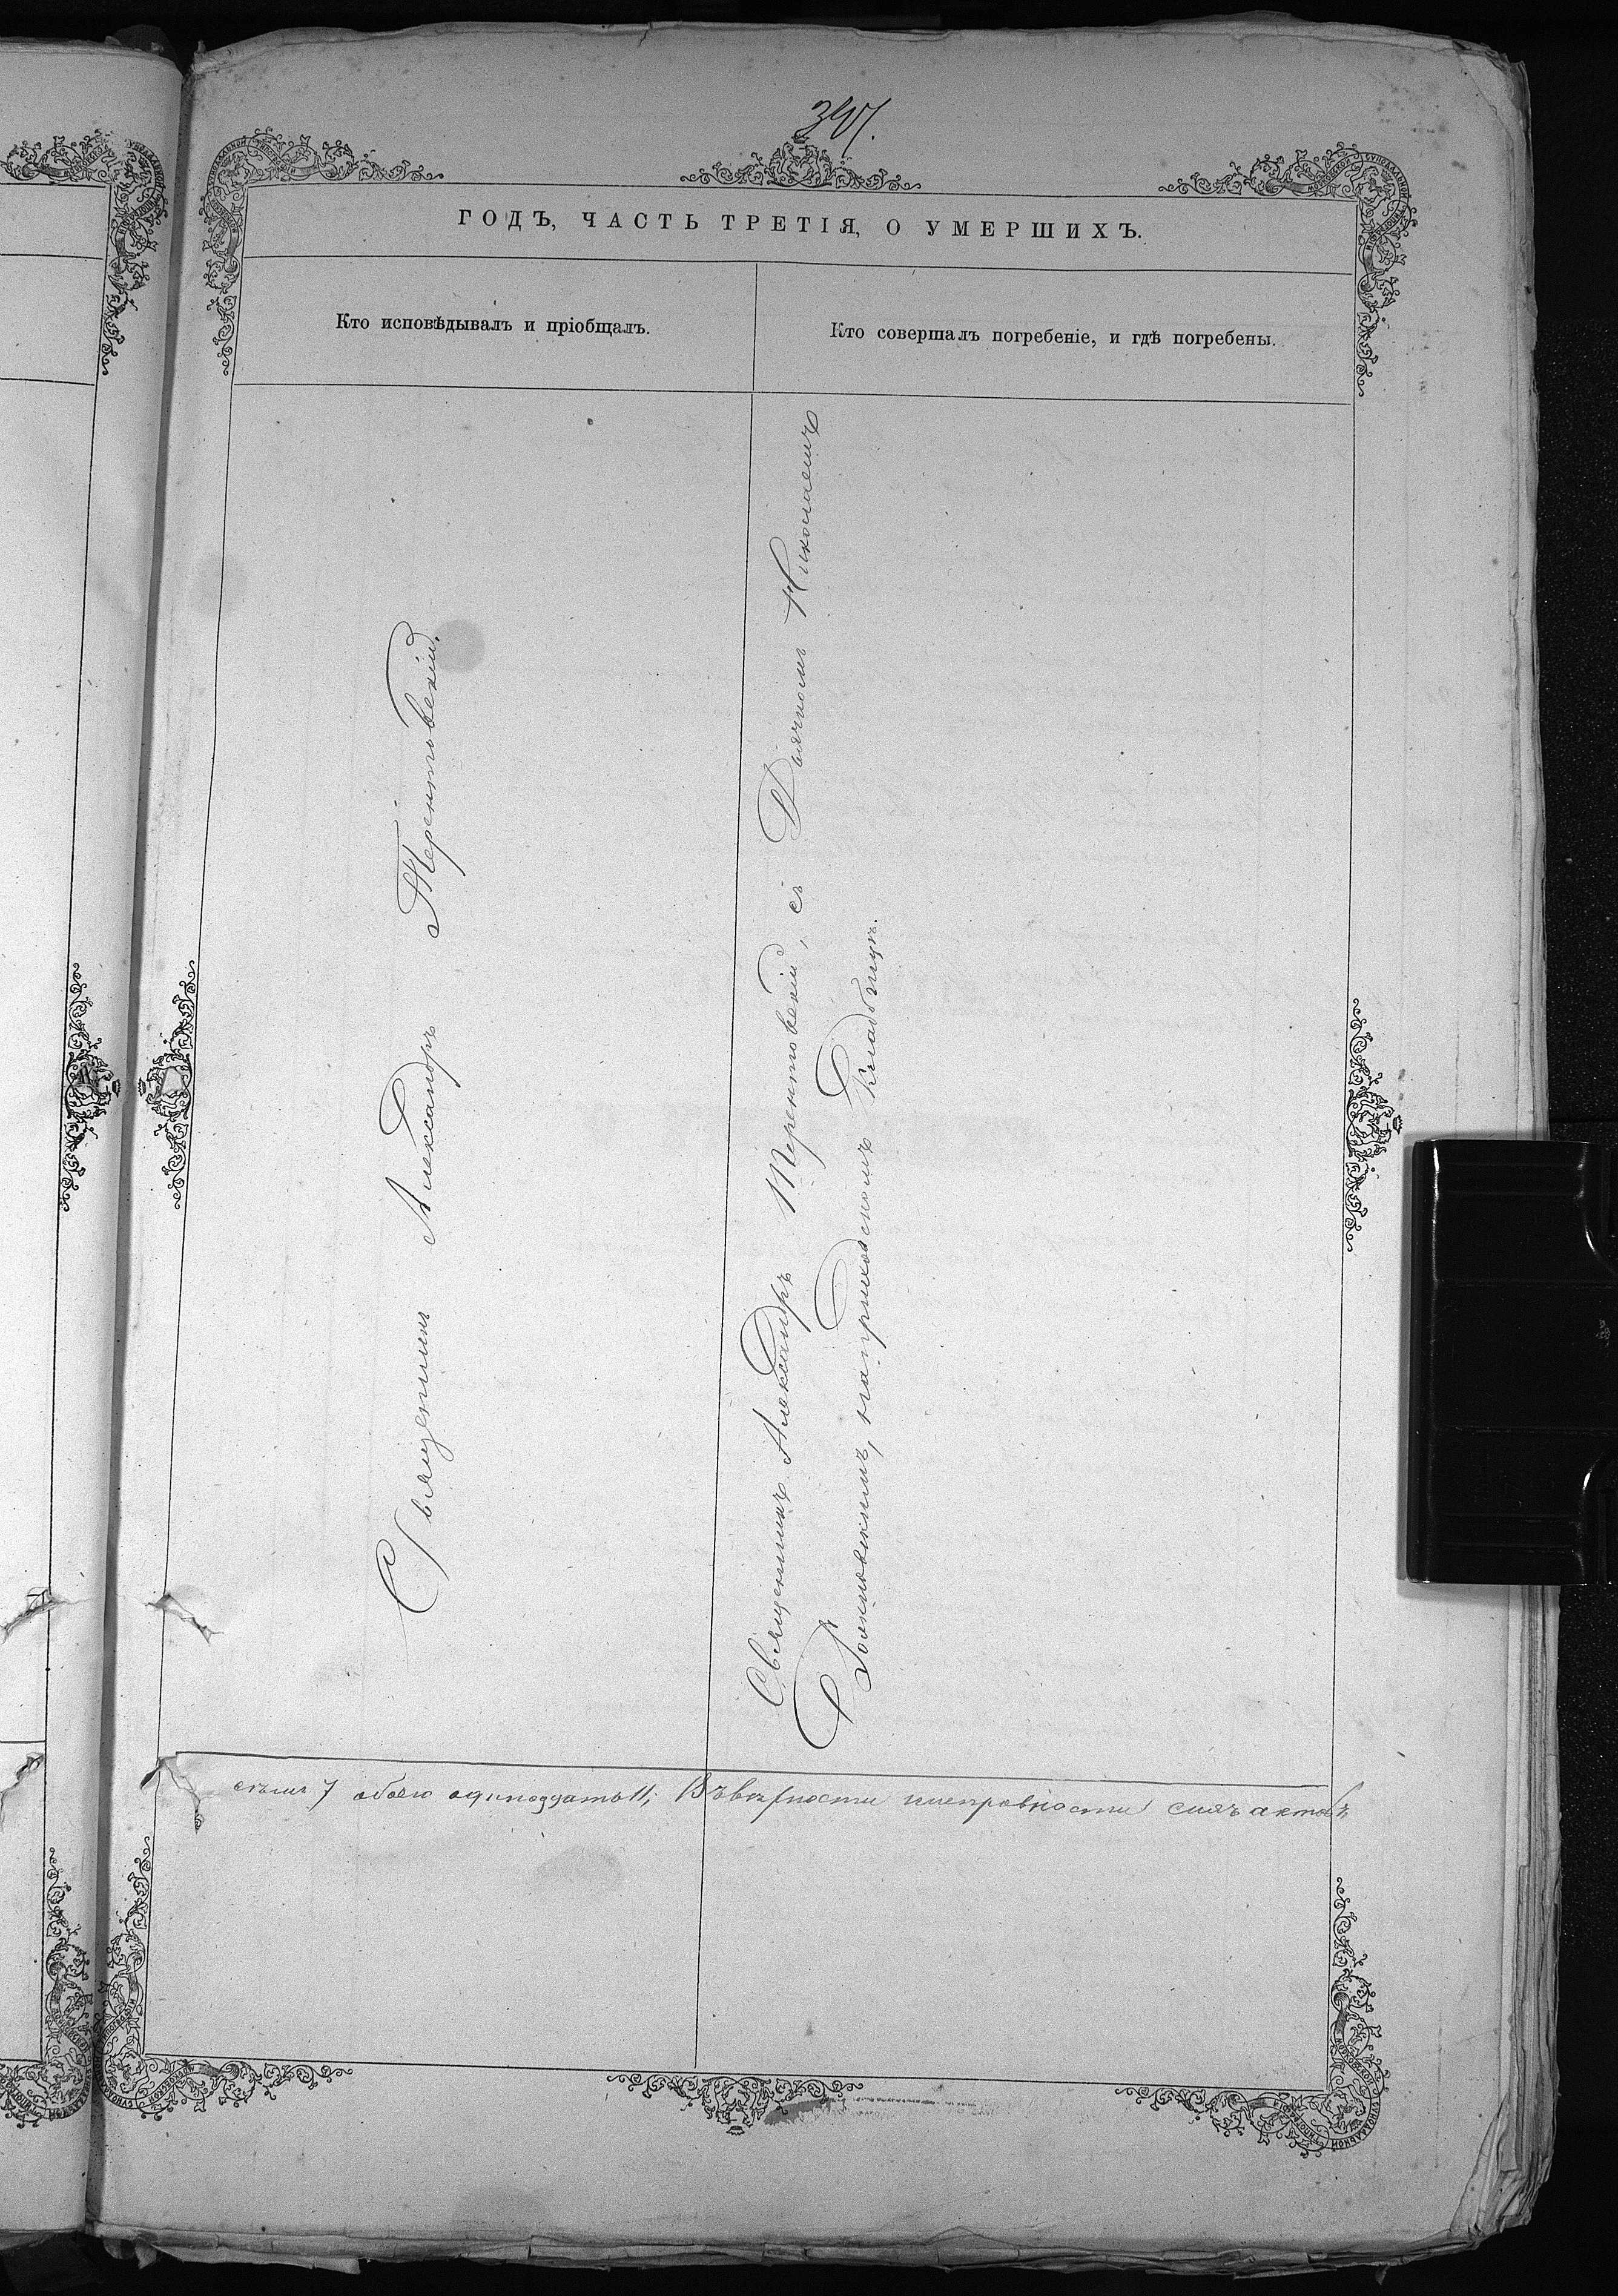 397.
ГОДЪ, ЧАСТЬ ТРЕТІЯ, О УМЕРШИХЪ.
Кто исповѣдывалъ и пріобщалъ.
Кто совершалъ погребеніе, и гдѣ погребены.
Священникъ Александръ Терентовскій.
Священникъ Александръ Терентовскій, съ Дьячкомъ Николаемъ
наприходскомъ Кладбищѣ.
седмь 7 обоего одинадцать 11; Въ вѣрности и исправности сихъ актовъ